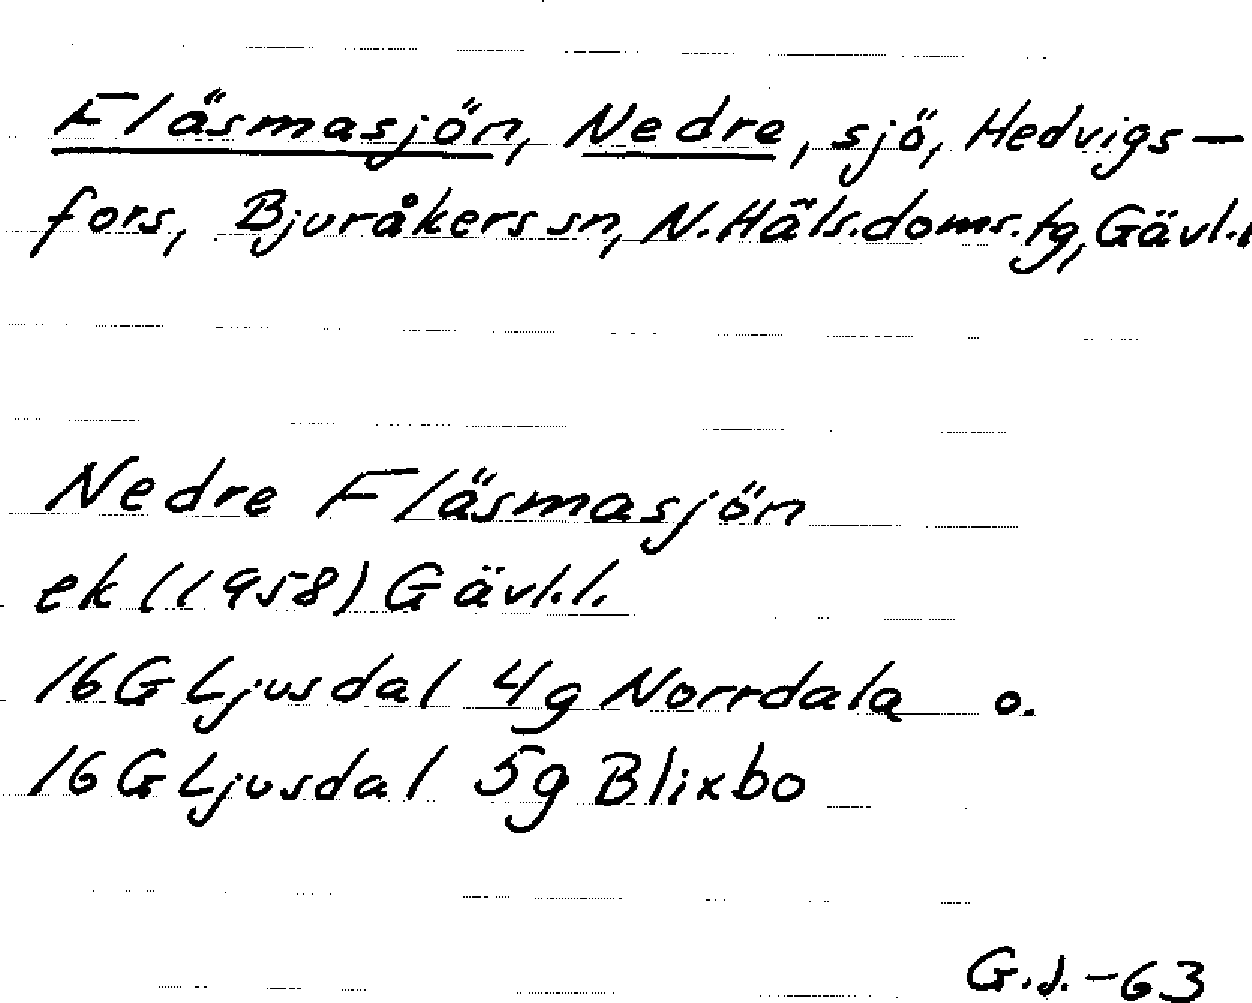 Fläsmasjön, Nedre, sjö, Hedvigs-
fors, Bjuråkers sn, N. Häls. doms. tg, Gävl.l
Nedre Fläsmasjön
ek (1958) Gävl.l.
16G Ljusdal 4g Norrdala o.
16G Ljusdal 5g Blixbo
G.J. -63